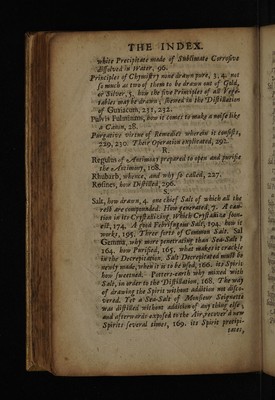 THE INDEX.
white Precipitate made of Sublimate Corrosive
dissolved in Water, 96.
Principles of Chymistry none drawn pure, 3, 4. not
so much as two of them to be drawn out of Gold,
or Silver, 5. how the five Principles of all Vege-
tables may be drawn, shewed in the Distillation
of Guaiacum, 231, 232.
Pulvis Fulminans, how it comes to make a noise like
a Canon, 28.
Purgative virtue of Remedies wherein it consists,
229, 230. Their Operation explicated, 292.
R.
Regulus of Antimony prepared to open and purifie
the Antimony, 108.
Rhubarb, whence, and why so called, 227.
Rosines, how Distilled, 296.
S.
Salt, how drawn, 4. one chief Salt of which all the
rest are compounded. How generated, 7. A cau-
tion in its Crystallizing. Which Crystallize soon-
est, 174. A good Febrifugious Salt, 194. how it
works, 195. Three sorts of Common Salt. Sal
Gemma, why more penetrating than Sea-Salt?
164. how Purified, 165. what makes it crackle
in the Decrepitation. Salt Decrepitated must be
newly made, when it is to be used, 166. its Spirit
how sweetned. Potters-earth why mixed with
Salt, in order to the Distillation, 168. The way
of drawing the Spirit without addition not disco-
vered. Yet a Sea-Salt of Monsieur Seignette
was distilled without addition of any thing else,
and afterwards exposed to the Air, recover'd new
Spirits several times, 169. its Spirit precipi-
tates,